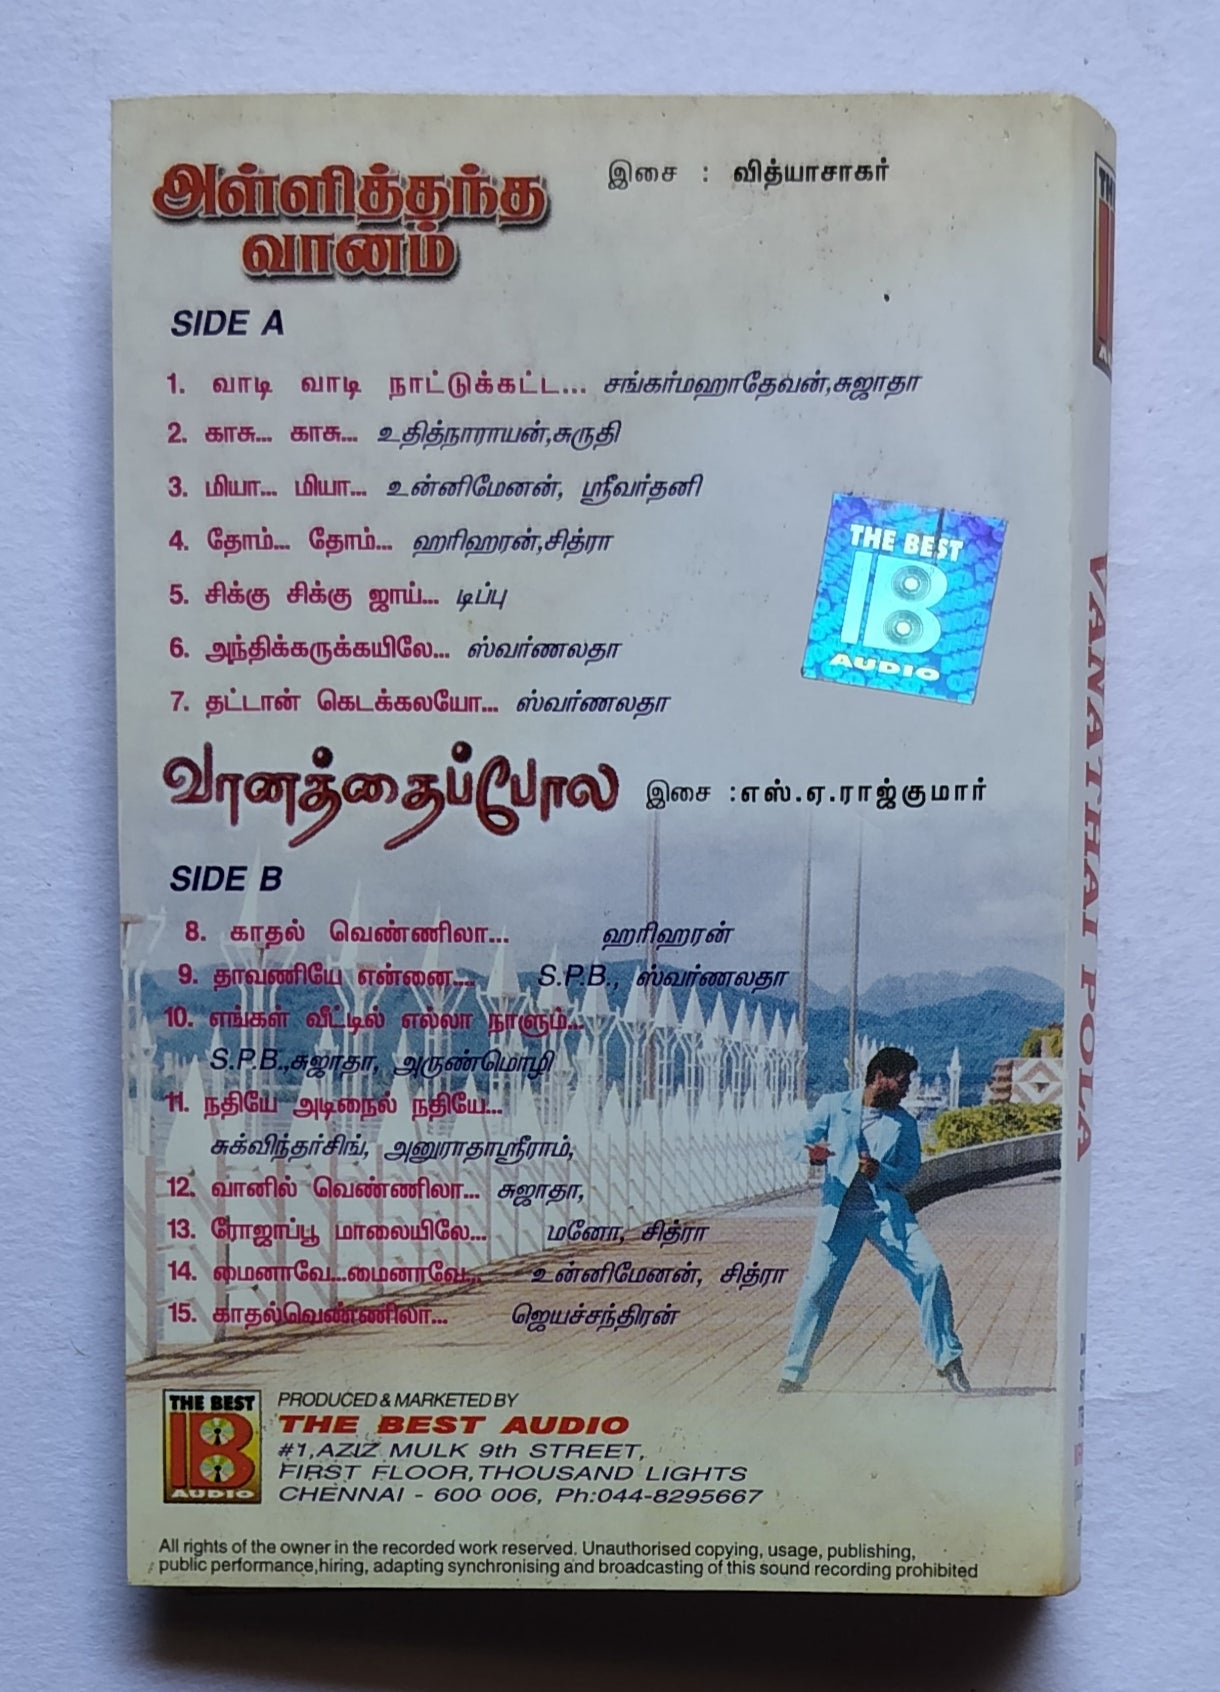 அள்ளித்தந்த
வானம்
இசை : வித்யாசாகர்
SIDE A
1. வாடி வாடி நாட்டுக்கட்ட... சங்கர்மஹாதேவன்,சுஜாதா
2. காசு... காசு... உதித்நாராயன்,சுருதி
3. மியா... மியா... உன்னிமேனன், ஸ்ரீவர்தனி
4. தோம்... தோம்... ஹரிஹரன்,சித்ரா
5. சிக்கு சிக்கு ஜாய்... டிப்பு
6. அந்திக்கருக்கயிலே... ஸ்வர்ணலதா
7. தட்டான் கெடக்கலயோ... ஸ்வர்ணலதா
THE BEST
B
AUDIO
வானத்தைப்போல
இசை :எஸ்.ஏ.ராஜ்குமார்
SIDE B
8. காதல் வெண்ணிலா... ஹரிஹரன்
9. தாவணியே என்னை.... S.P.B., ஸ்வர்ணலதா
10. எங்கள் வீட்டில் எல்லா நாளும்...
S.P.B.,சுஜாதா, அருண்மொழி
11. நதியே அடிநைல் நதியே...
சுக்விந்தர்சிங், அனுராதாஸ்ரீராம்,
12. வானில் வெண்ணிலா... சுஜாதா,
13. ரோஜாப்பூ மாலையிலே... மனோ, சித்ரா
14. மைனாவே...மைனாவே... உன்னிமேனன், சித்ரா
15. காதல்வெண்ணிலா... ஜெயச்சந்திரன்
THE BEST
B
AUDIO
PRODUCED & MARKETED BY
THE BEST AUDIO
#1,AZIZ MULK 9th STREET,
FIRST FLOOR,THOUSAND LIGHTS
CHENNAI - 600 006, Ph:044-8295667
All rights of the owner in the recorded work reserved. Unauthorised copying, usage, publishing,
public performance,hiring, adapting synchronising and broadcasting of this sound recording prohibited
VANATHAI POLA